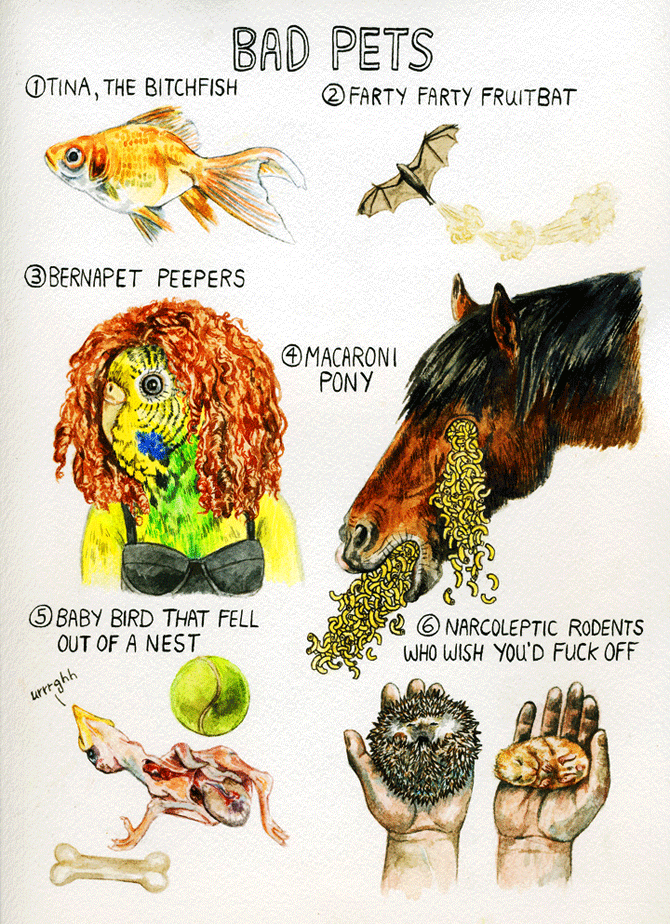 BAD PETS
①TINA, THE BITCHFISH
②FARTY FARTY FRUITBAT
③BERNAPET PEEPERS
④MACARONI
PONY
⑤BABY BIRD THAT FELL
OUT OF A NEST
urrrghh
⑥NARCOLEPTIC RODENTS
WHO WISH YOU'D FUCK OFF